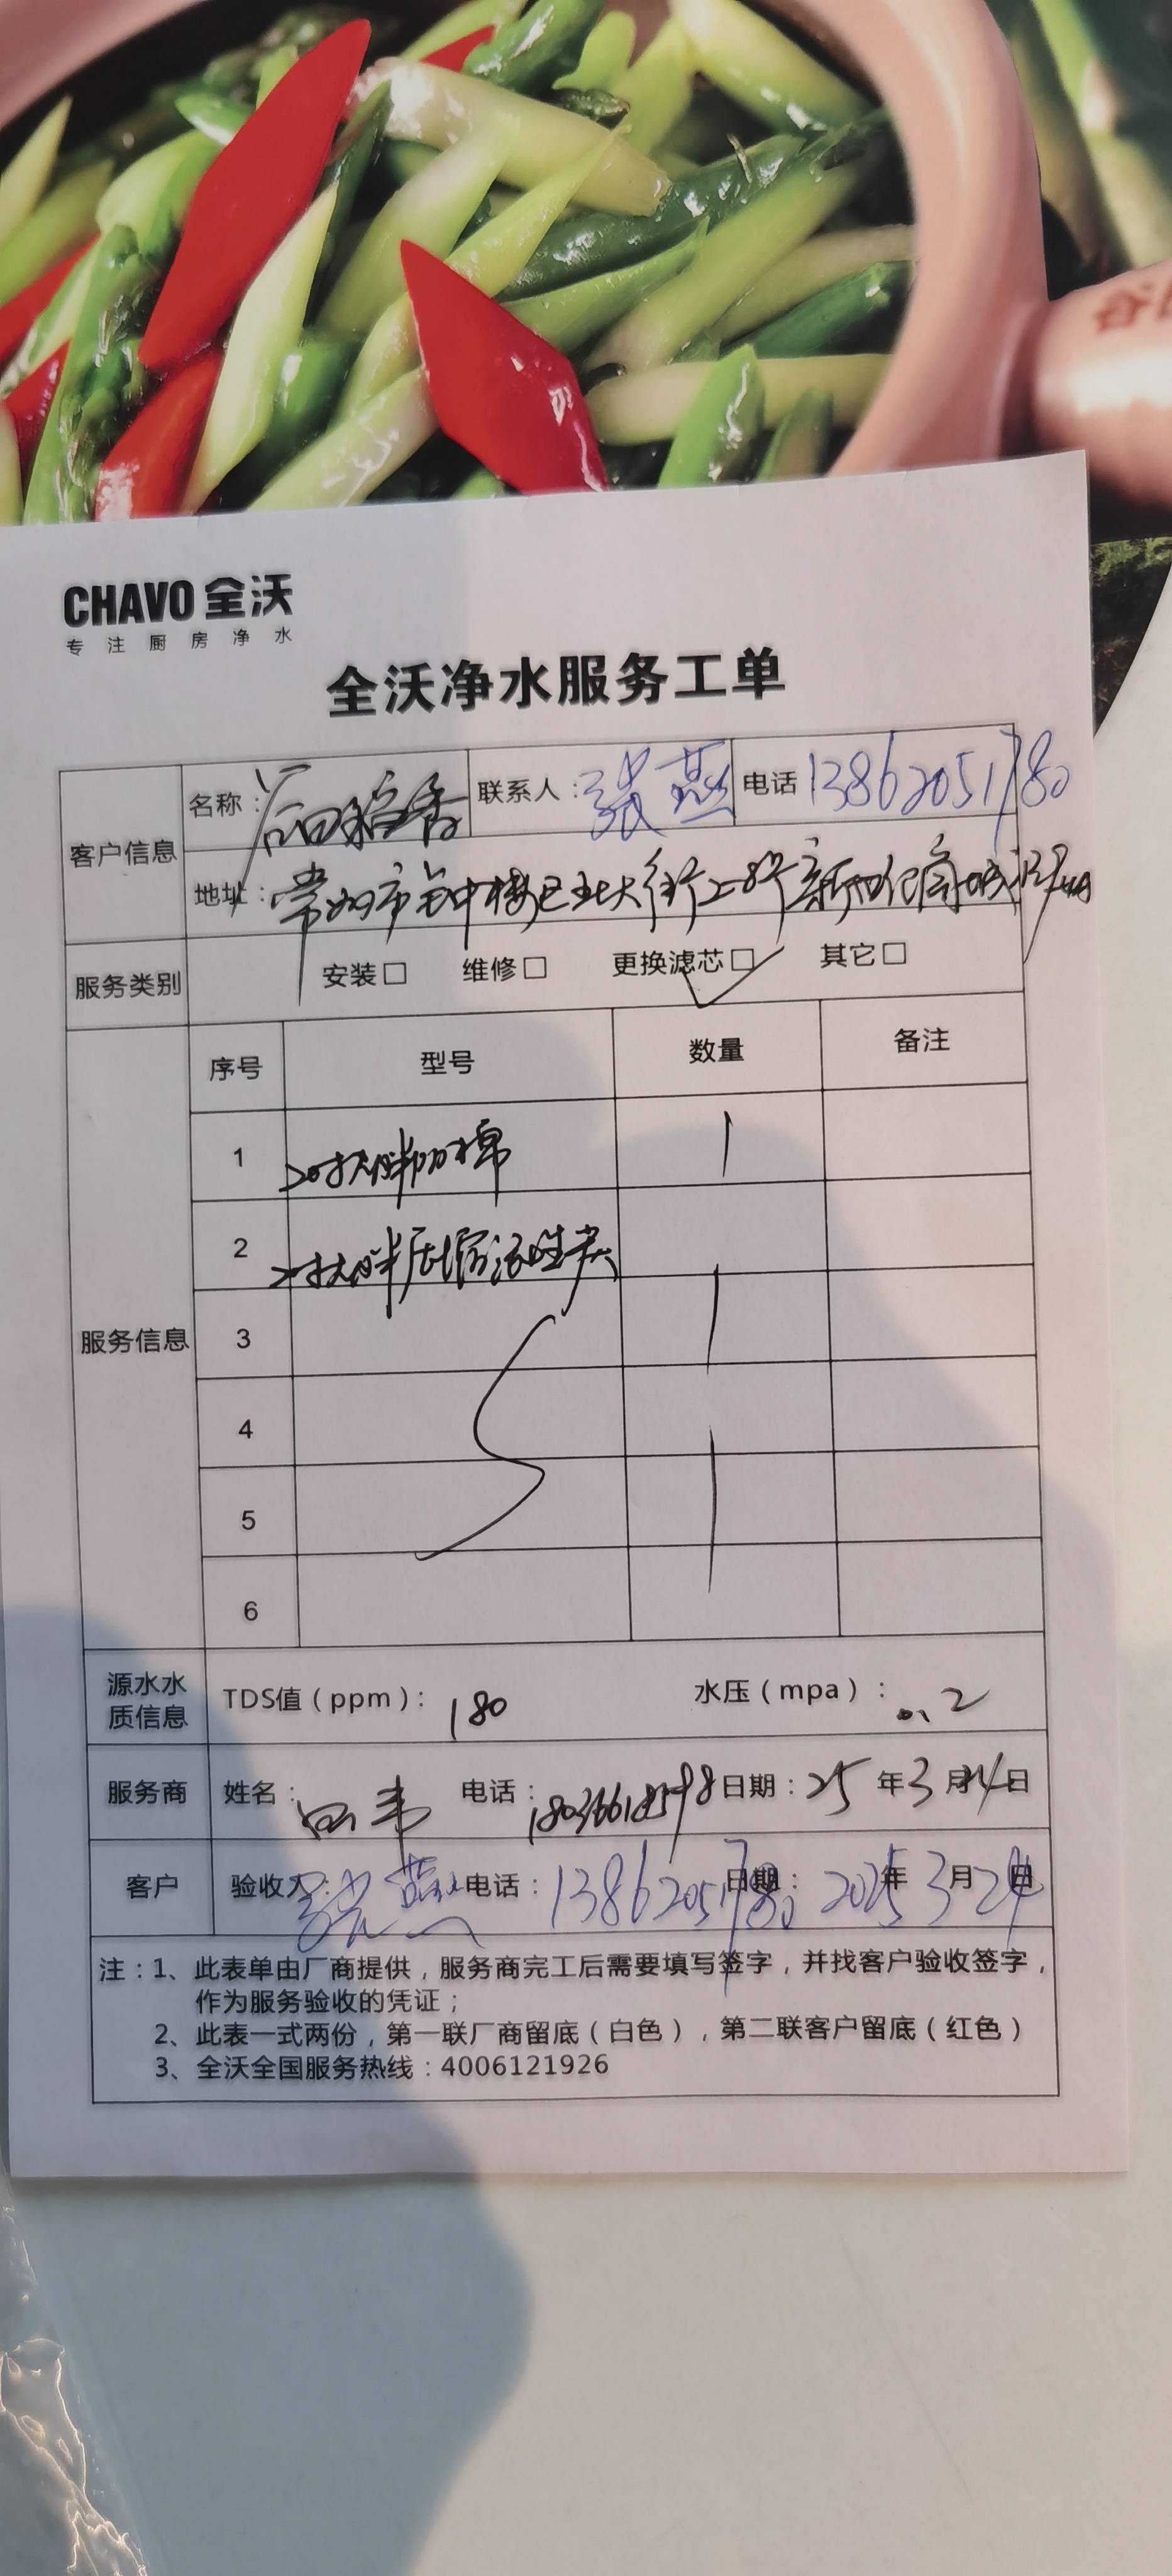 CHAVO 全沃
专注厨房净水
全沃净水服务工单
客户信息
名称：后田稻香
联系人：张燕
电话 13862051780
地址：常州市钟楼区北大街28号新世纪商城
服务类别
安装□ 维修□ 更换滤芯□ 其它□
服务信息
序号 型号 数量 备注
1 20寸大胖pp棉 1
2 20寸大胖压缩活性炭
3
4
5
6
源水水质信息
TDS值（ppm）：180
水压（mpa）：0.2
服务商
姓名：
电话：
日期：25年3月24日
客户
验收人：张燕
电话：13862051780
日期：2025年3月24日
注：1、此表单由厂商提供，服务商完工后需要填写签字，并找客户验收签字，
作为服务验收的凭证；
2、此表一式两份，第一联厂商留底（白色），第二联客户留底（红色）
3、全沃全国服务热线：4006121926